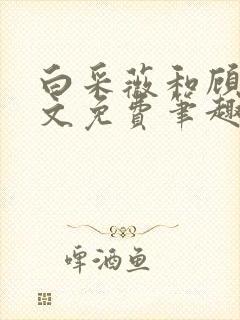 白采薇和顾
文免费笔趣
啤酒鱼